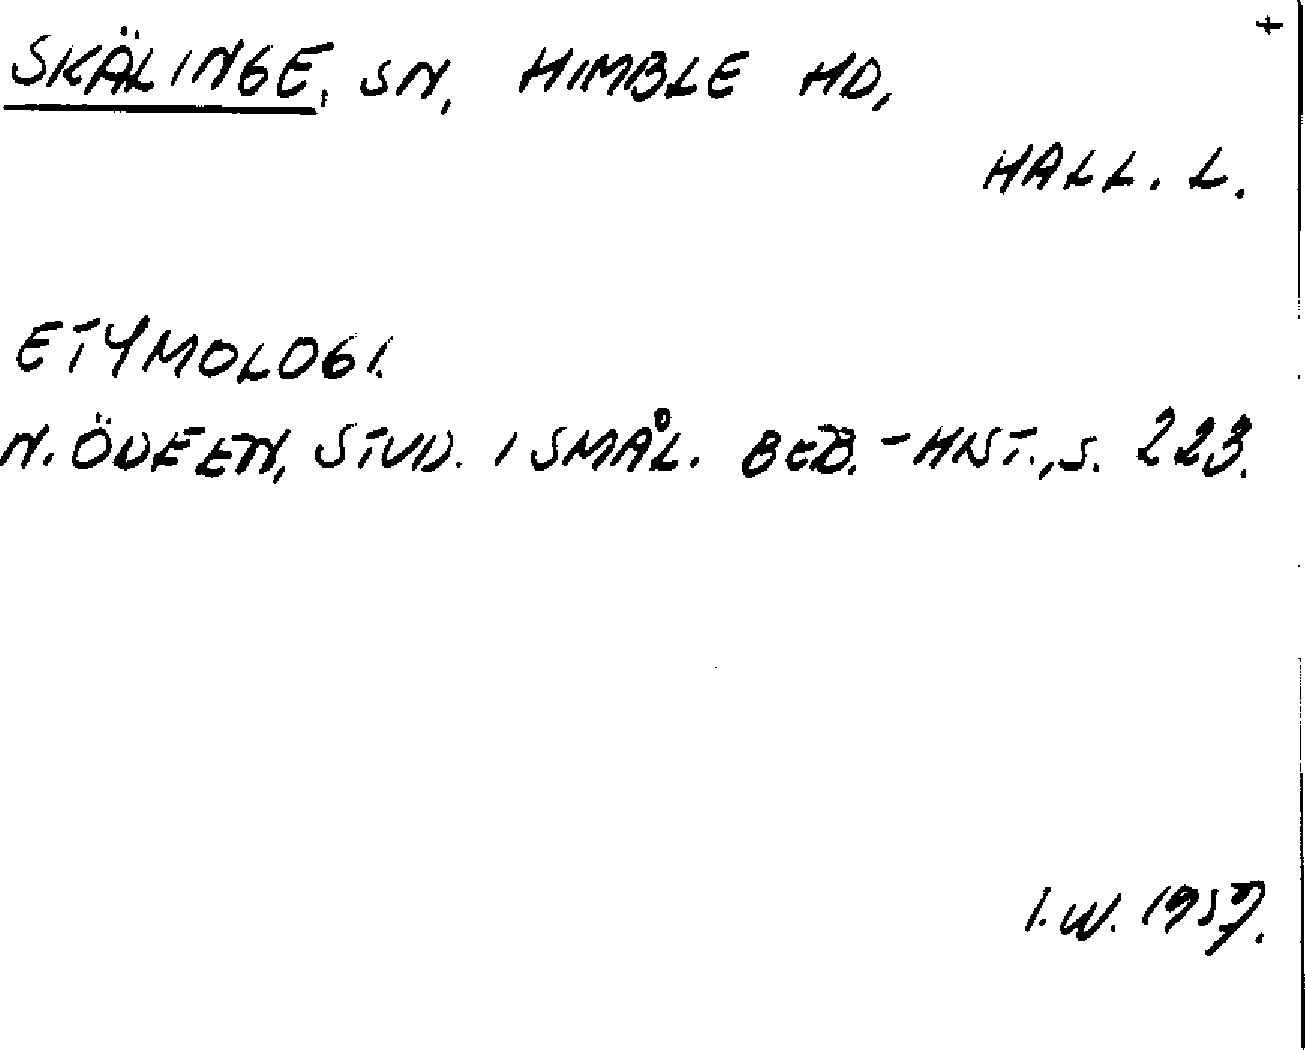 SKÄLINGE, SN, HIMBLE HD,
HALL. L.
ETYMOLOGI.
N. ÖDEEN, STUD. I SMÅL. BEB.-HIST., S. 223.
I.W. 1957.